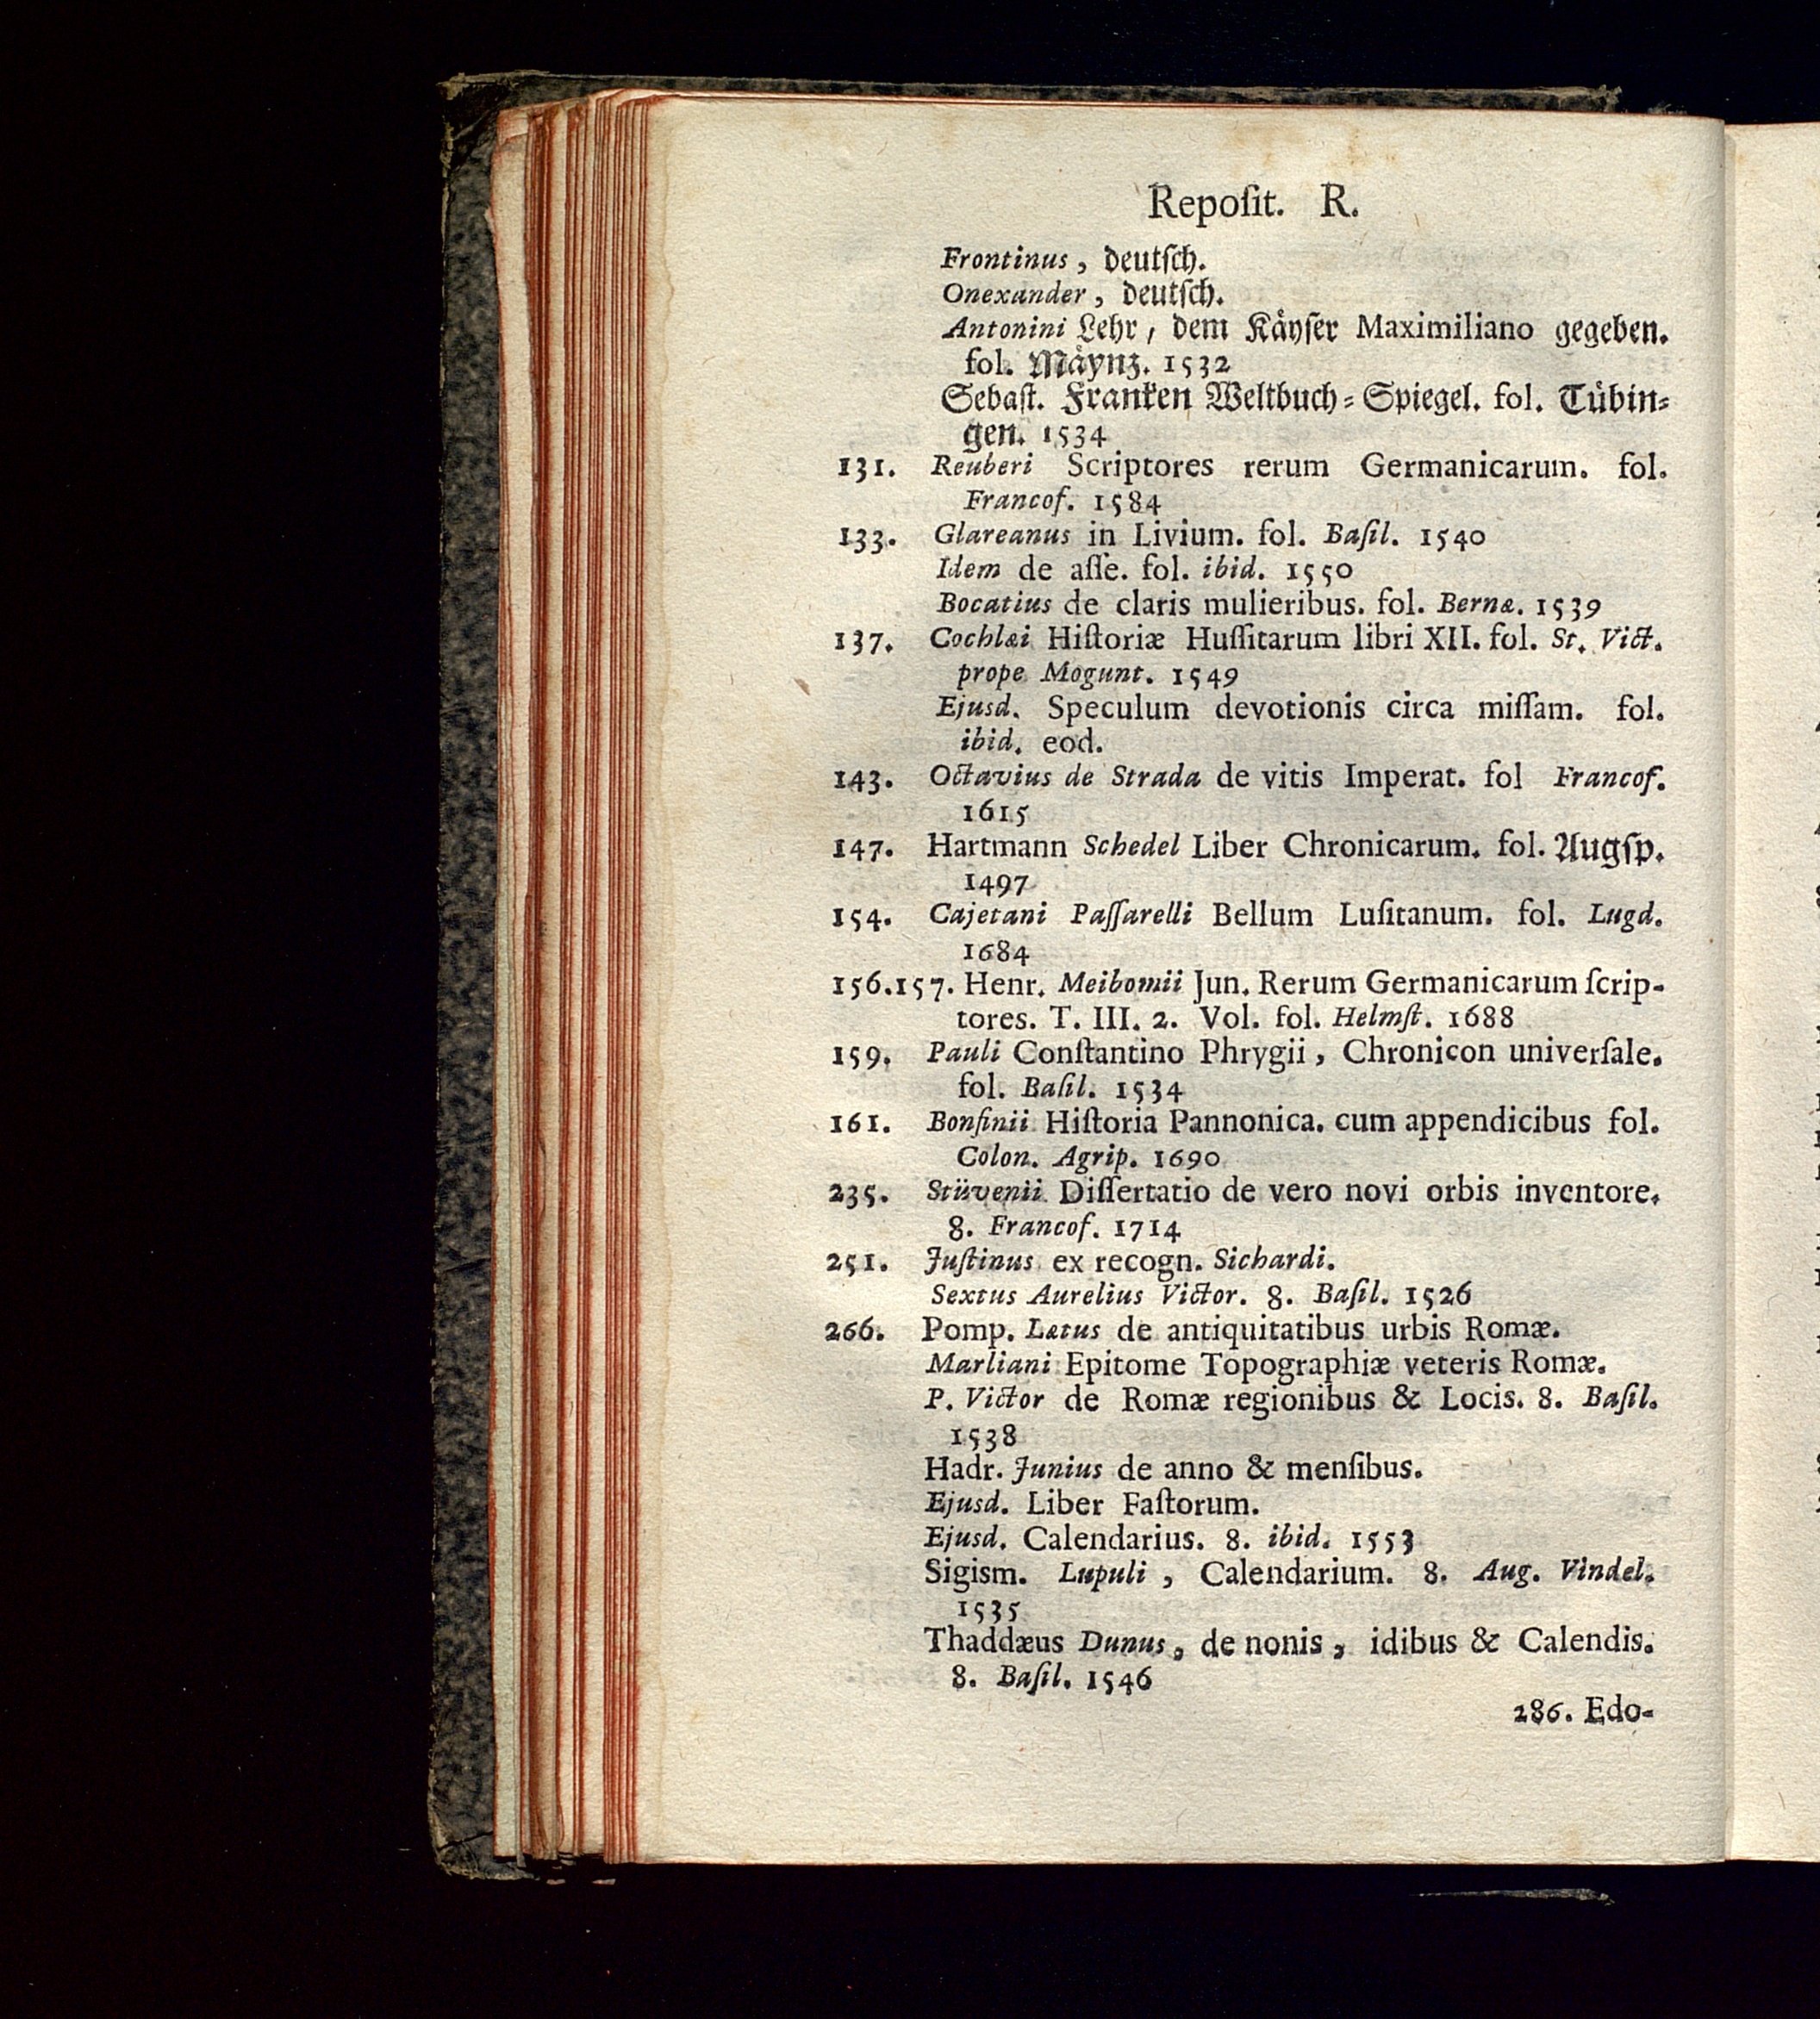 Repoſit. R.
Frontinus, deutſch.
Onexander, deutſch.
Antonini Lehr, dem Kaͤyſer Maximiliano gegeben.
fol. Maͤynz. 1532
Sebaſt. Franken Weltbuch-Spiegel. fol. Tuͤbin-
gen. 1534
131. Reuberi Scriptores rerum Germanicarum. fol.
Francof. 1584
133. Glareanus in Livium. fol. Baſil. 1540
Idem de aſſe. fol. ibid. 1550
Bocatius de claris mulieribus. fol. Bernæ. 1539
137. Cochlæi Hiſtoriæ Huſſitarum libri XII. fol. St. Vict.
prope Mogunt. 1549
Ejusd. Speculum devotionis circa miſſam. fol.
ibid. eod.
143. Octavius de Strada de vitis Imperat. fol Francof.
1615
147. Hartmann Schedel Liber Chronicarum. fol. Augſp.
1497
154. Cajetani Paſſarelli Bellum Luſitanum. fol. Lugd.
1684
156.157. Henr. Meibomii Jun. Rerum Germanicarum ſcrip-
tores. T. III. 2. Vol. fol. Helmſt. 1688
159. Pauli Conſtantino Phrygii, Chronicon univerſale.
fol. Baſil. 1534
161. Bonfinii Hiſtoria Pannonica. cum appendicibus fol.
Colon. Agrip. 1690
235. Stüvenii Diſſertatio de vero novi orbis inventore.
8. Francof. 1714
251. Juſtinus ex recogn. Sichardi.
Sextus Aurelius Victor. 8. Baſil. 1526
266. Pomp. Lætus de antiquitatibus urbis Romæ.
Marliani Epitome Topographiæ veteris Romæ.
P. Victor de Romæ regionibus & Locis. 8. Baſil.
1538
Hadr. Junius de anno & menſibus.
Ejusd. Liber Faſtorum.
Ejusd. Calendarius. 8. ibid. 1553
Sigism. Lupuli, Calendarium. 8. Aug. Vindel.
1535
Thaddæus Dunus, de nonis, idibus & Calendis.
8. Baſil. 1546
286. Edo-